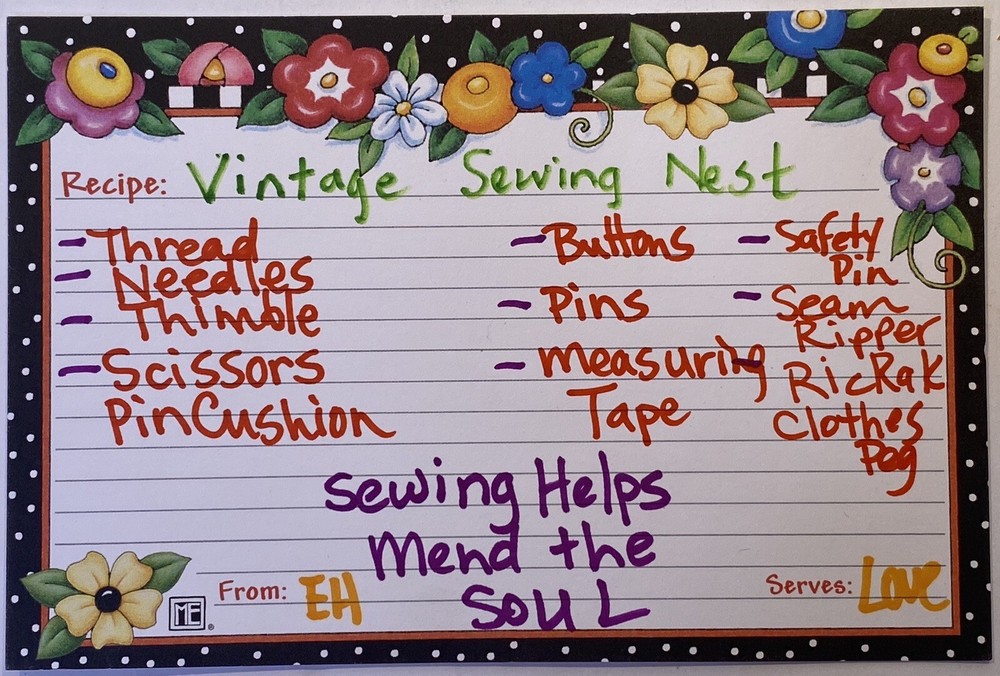 Recipe: Vintage Sewing Nest
- Thread
- Needles
- Thimble
- Scissors
PinCushion
- Buttons
- Pins
- Measuring
Tape
- Safety
Pin
- Seam
Ripper
- RicRak
Clothes
Peg
Sewing Helps
Mend the
SOUL
From: EH
Serves: Love
ME